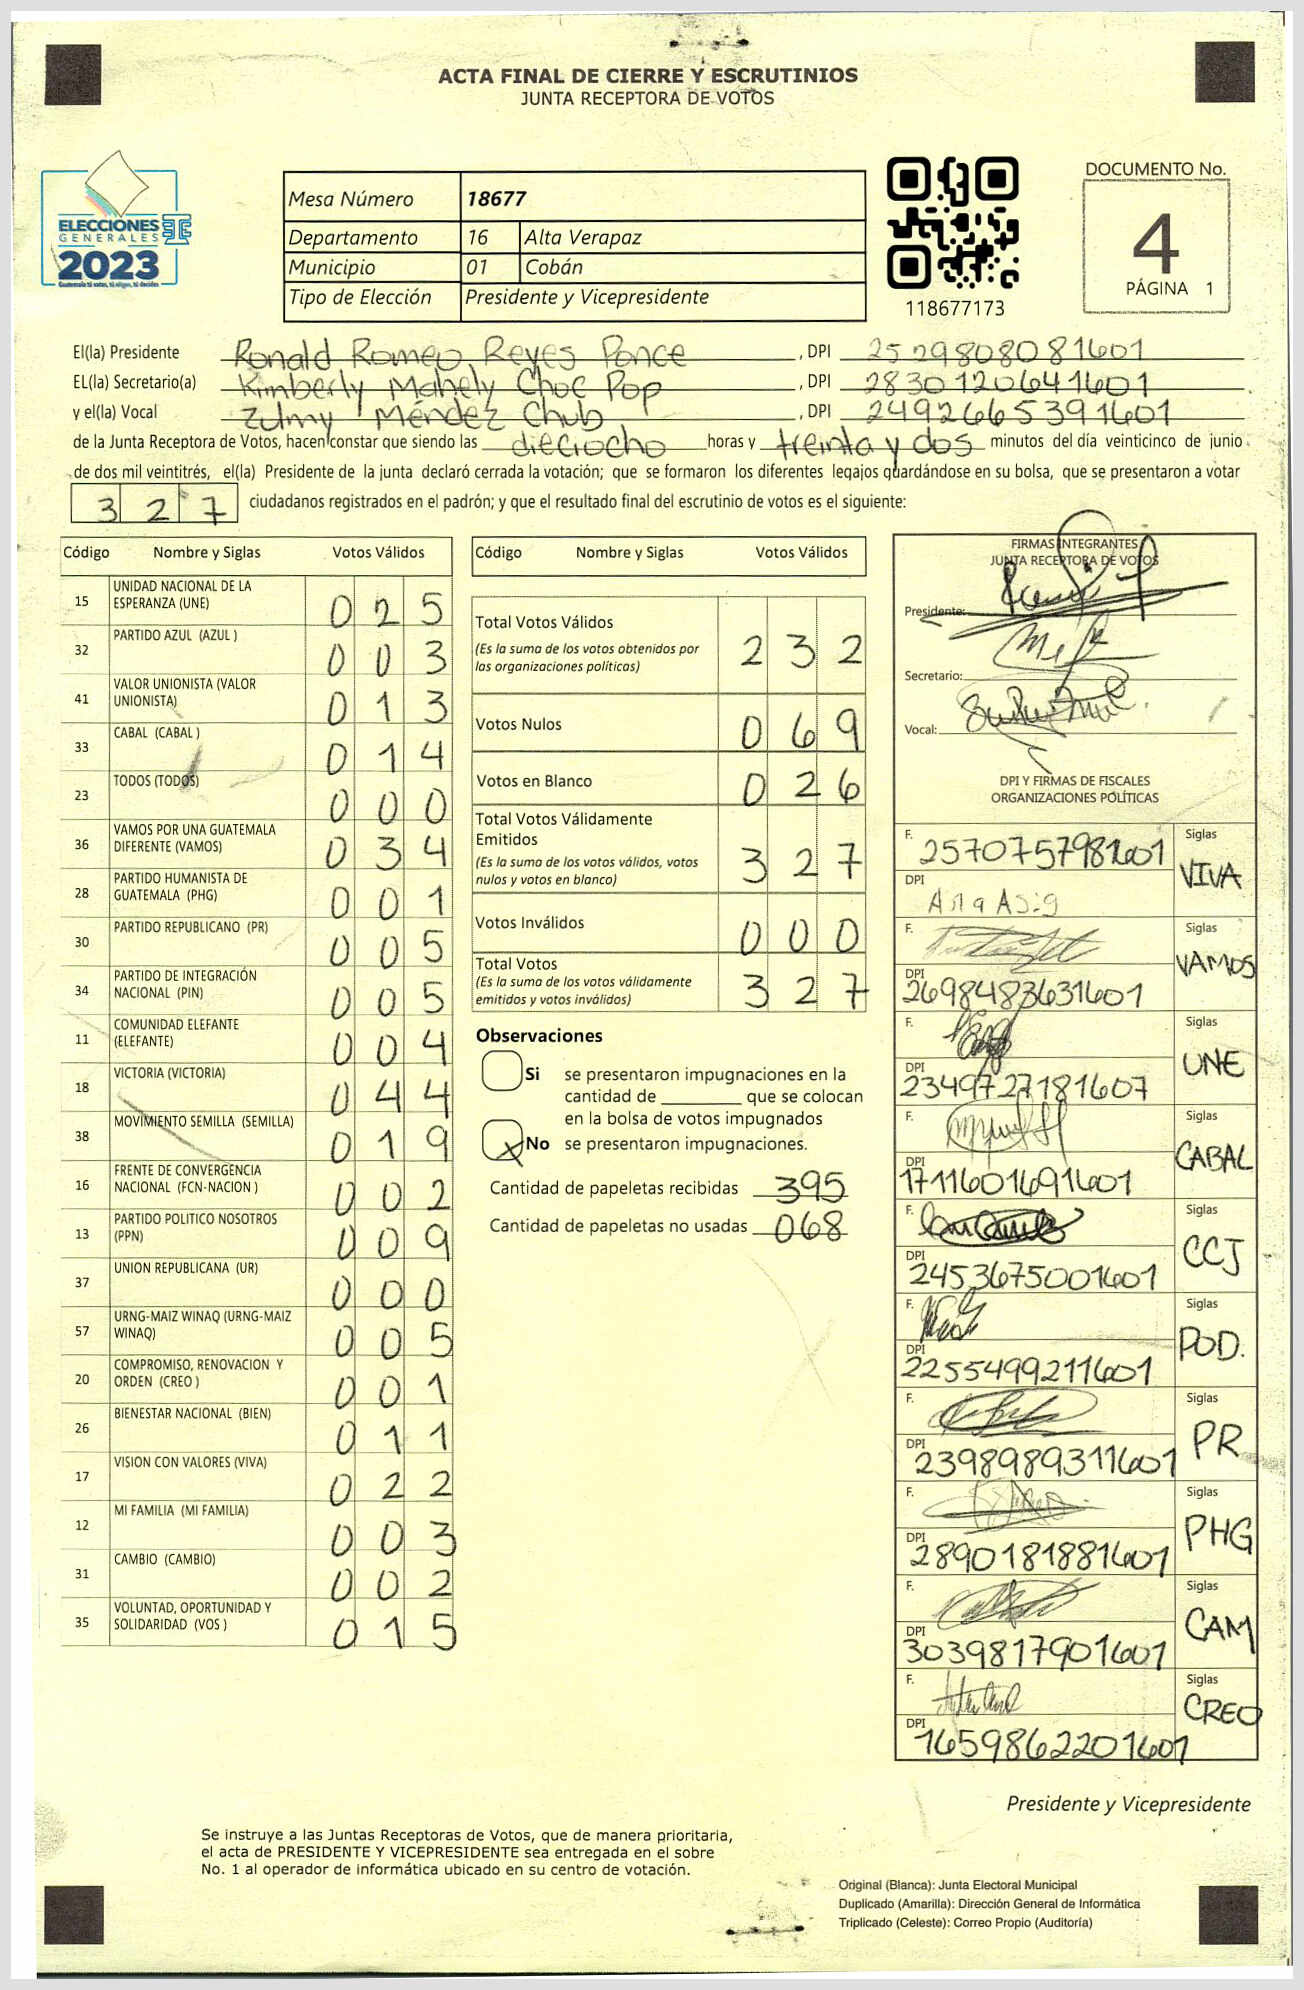 ACTA FINAL DE CIERRE Y ESCRUTINIOS
JUNTA RECEPTORA DE VOTOS
ELECCIONES
GENERALES
2023
Guatemala tú votas, tú eliges, tú decides
Mesa Número 18677
Departamento 16 Alta Verapaz
Municipio 01 Cobán
Tipo de Elección Presidente y Vicepresidente
118677173
DOCUMENTO No.
4
PÁGINA 1
El(la) Presidente Ronald Romeo Reyes Ponce , DPI 2529808081601
EL(la) Secretario(a) Kimberly Mahely Choc Pop , DPI 2830120641601
y el(la) Vocal Zulmy Méndez Chub , DPI 2492665391601
de la Junta Receptora de Votos, hacen constar que siendo las dieciocho horas y treinta y dos minutos del día veinticinco de junio
de dos mil veintitrés, el(la) Presidente de la junta declaró cerrada la votación; que se formaron los diferentes legajos guardándose en su bolsa, que se presentaron a votar
327 ciudadanos registrados en el padrón; y que el resultado final del escrutinio de votos es el siguiente:
Código Nombre y Siglas Votos Válidos
15 UNIDAD NACIONAL DE LA ESPERANZA (UNE) 025
32 PARTIDO AZUL (AZUL ) 003
41 VALOR UNIONISTA (VALOR UNIONISTA) 013
33 CABAL (CABAL ) 014
23 TODOS (TODOS) 000
36 VAMOS POR UNA GUATEMALA DIFERENTE (VAMOS) 034
28 PARTIDO HUMANISTA DE GUATEMALA (PHG) 001
30 PARTIDO REPUBLICANO (PR) 005
34 PARTIDO DE INTEGRACIÓN NACIONAL (PIN) 005
11 COMUNIDAD ELEFANTE (ELEFANTE) 004
18 VICTORIA (VICTORIA) 044
38 MOVIMIENTO SEMILLA (SEMILLA) 019
16 FRENTE DE CONVERGENCIA NACIONAL (FCN-NACION ) 002
13 PARTIDO POLITICO NOSOTROS (PPN) 009
37 UNION REPUBLICANA (UR) 000
57 URNG-MAIZ WINAQ (URNG-MAIZ WINAQ) 005
20 COMPROMISO, RENOVACION Y ORDEN (CREO ) 001
26 BIENESTAR NACIONAL (BIEN) 011
17 VISION CON VALORES (VIVA) 022
12 MI FAMILIA (MI FAMILIA) 003
31 CAMBIO (CAMBIO) 002
35 VOLUNTAD, OPORTUNIDAD Y SOLIDARIDAD (VOS ) 015
Código Nombre y Siglas Votos Válidos
Total Votos Válidos 232
(Es la suma de los votos obtenidos por
las organizaciones políticas)
Votos Nulos 069
Votos en Blanco 026
Total Votos Válidamente
Emitidos 327
(Es la suma de los votos válidos, votos
nulos y votos en blanco)
Votos Inválidos 000
Total Votos 327
(Es la suma de los votos válidamente
emitidos y votos inválidos)
Observaciones
Si se presentaron impugnaciones en la
cantidad de ________ que se colocan
en la bolsa de votos impugnados
X No se presentaron impugnaciones.
Cantidad de papeletas recibidas 395
Cantidad de papeletas no usadas 068
FIRMAS INTEGRANTES
JUNTA RECEPTORA DE VOTOS
Presidente:
Secretario:
Vocal:
DPI Y FIRMAS DE FISCALES
ORGANIZACIONES POLÍTICAS
F. 2570757981601 Siglas VIVA
DPI
F. Siglas VAMOS
DPI 2698483631601
F. Siglas UNE
DPI 2349727181607
F. Siglas CABAL
DPI 1711601691601
F. Siglas CCJ
DPI 2453675001601
F. Siglas POD.
DPI 2255499211601
F. Siglas PR
DPI 2398989311601
F. Siglas PHG
DPI 2890181881601
F. Siglas CAM
DPI 3039817901601
F. Siglas CREO
DPI 1659862201601
Presidente y Vicepresidente
Se instruye a las Juntas Receptoras de Votos, que de manera prioritaria,
el acta de PRESIDENTE Y VICEPRESIDENTE sea entregada en el sobre
No. 1 al operador de informática ubicado en su centro de votación.
Original (Blanca): Junta Electoral Municipal
Duplicado (Amarilla): Dirección General de Informática
Triplicado (Celeste): Correo Propio (Auditoría)